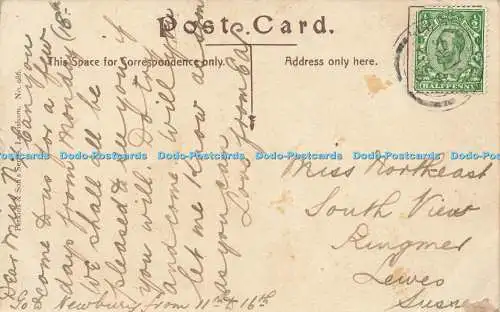 Post Card.
This Space for Correspondence only.
Address only here.
HALFPENNY
Dear Miss N. Can you
come to us for a few
days from Monday (18th
We shall all be
pleased to see you if
you will. Do try
and come & will you
let me know as soon
as you can
Love from
Go to Newbury from 11th to 16th
Miss Northeast
South View
Ringmer
Lewes
Sussex
Dodo-Postcards Dodo-Postcards Dodo-Postcards Dodo-Postcards Dodo-Postcards